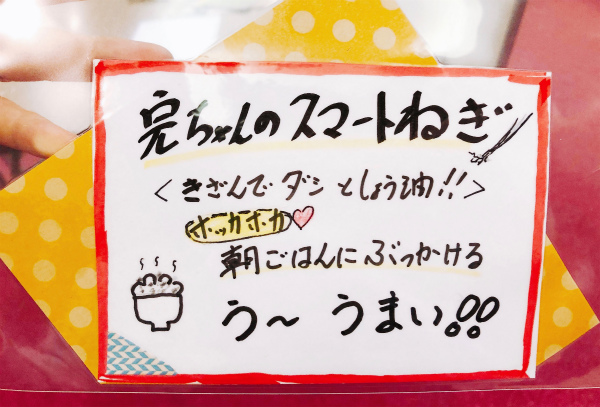 完ちゃんのスマートねぎ
<きざんでダシとしょう油!!>
ホッカホカ♡
朝ごはんにぶっかける
う〜うまい!!